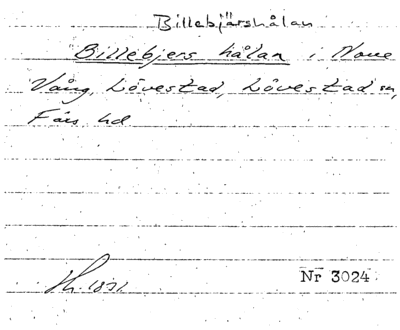 Billebjärshålan
Billebjers hålan i Norre
Vång, Lövestad, Lövestad sn,
Färs hd
Nr 3024